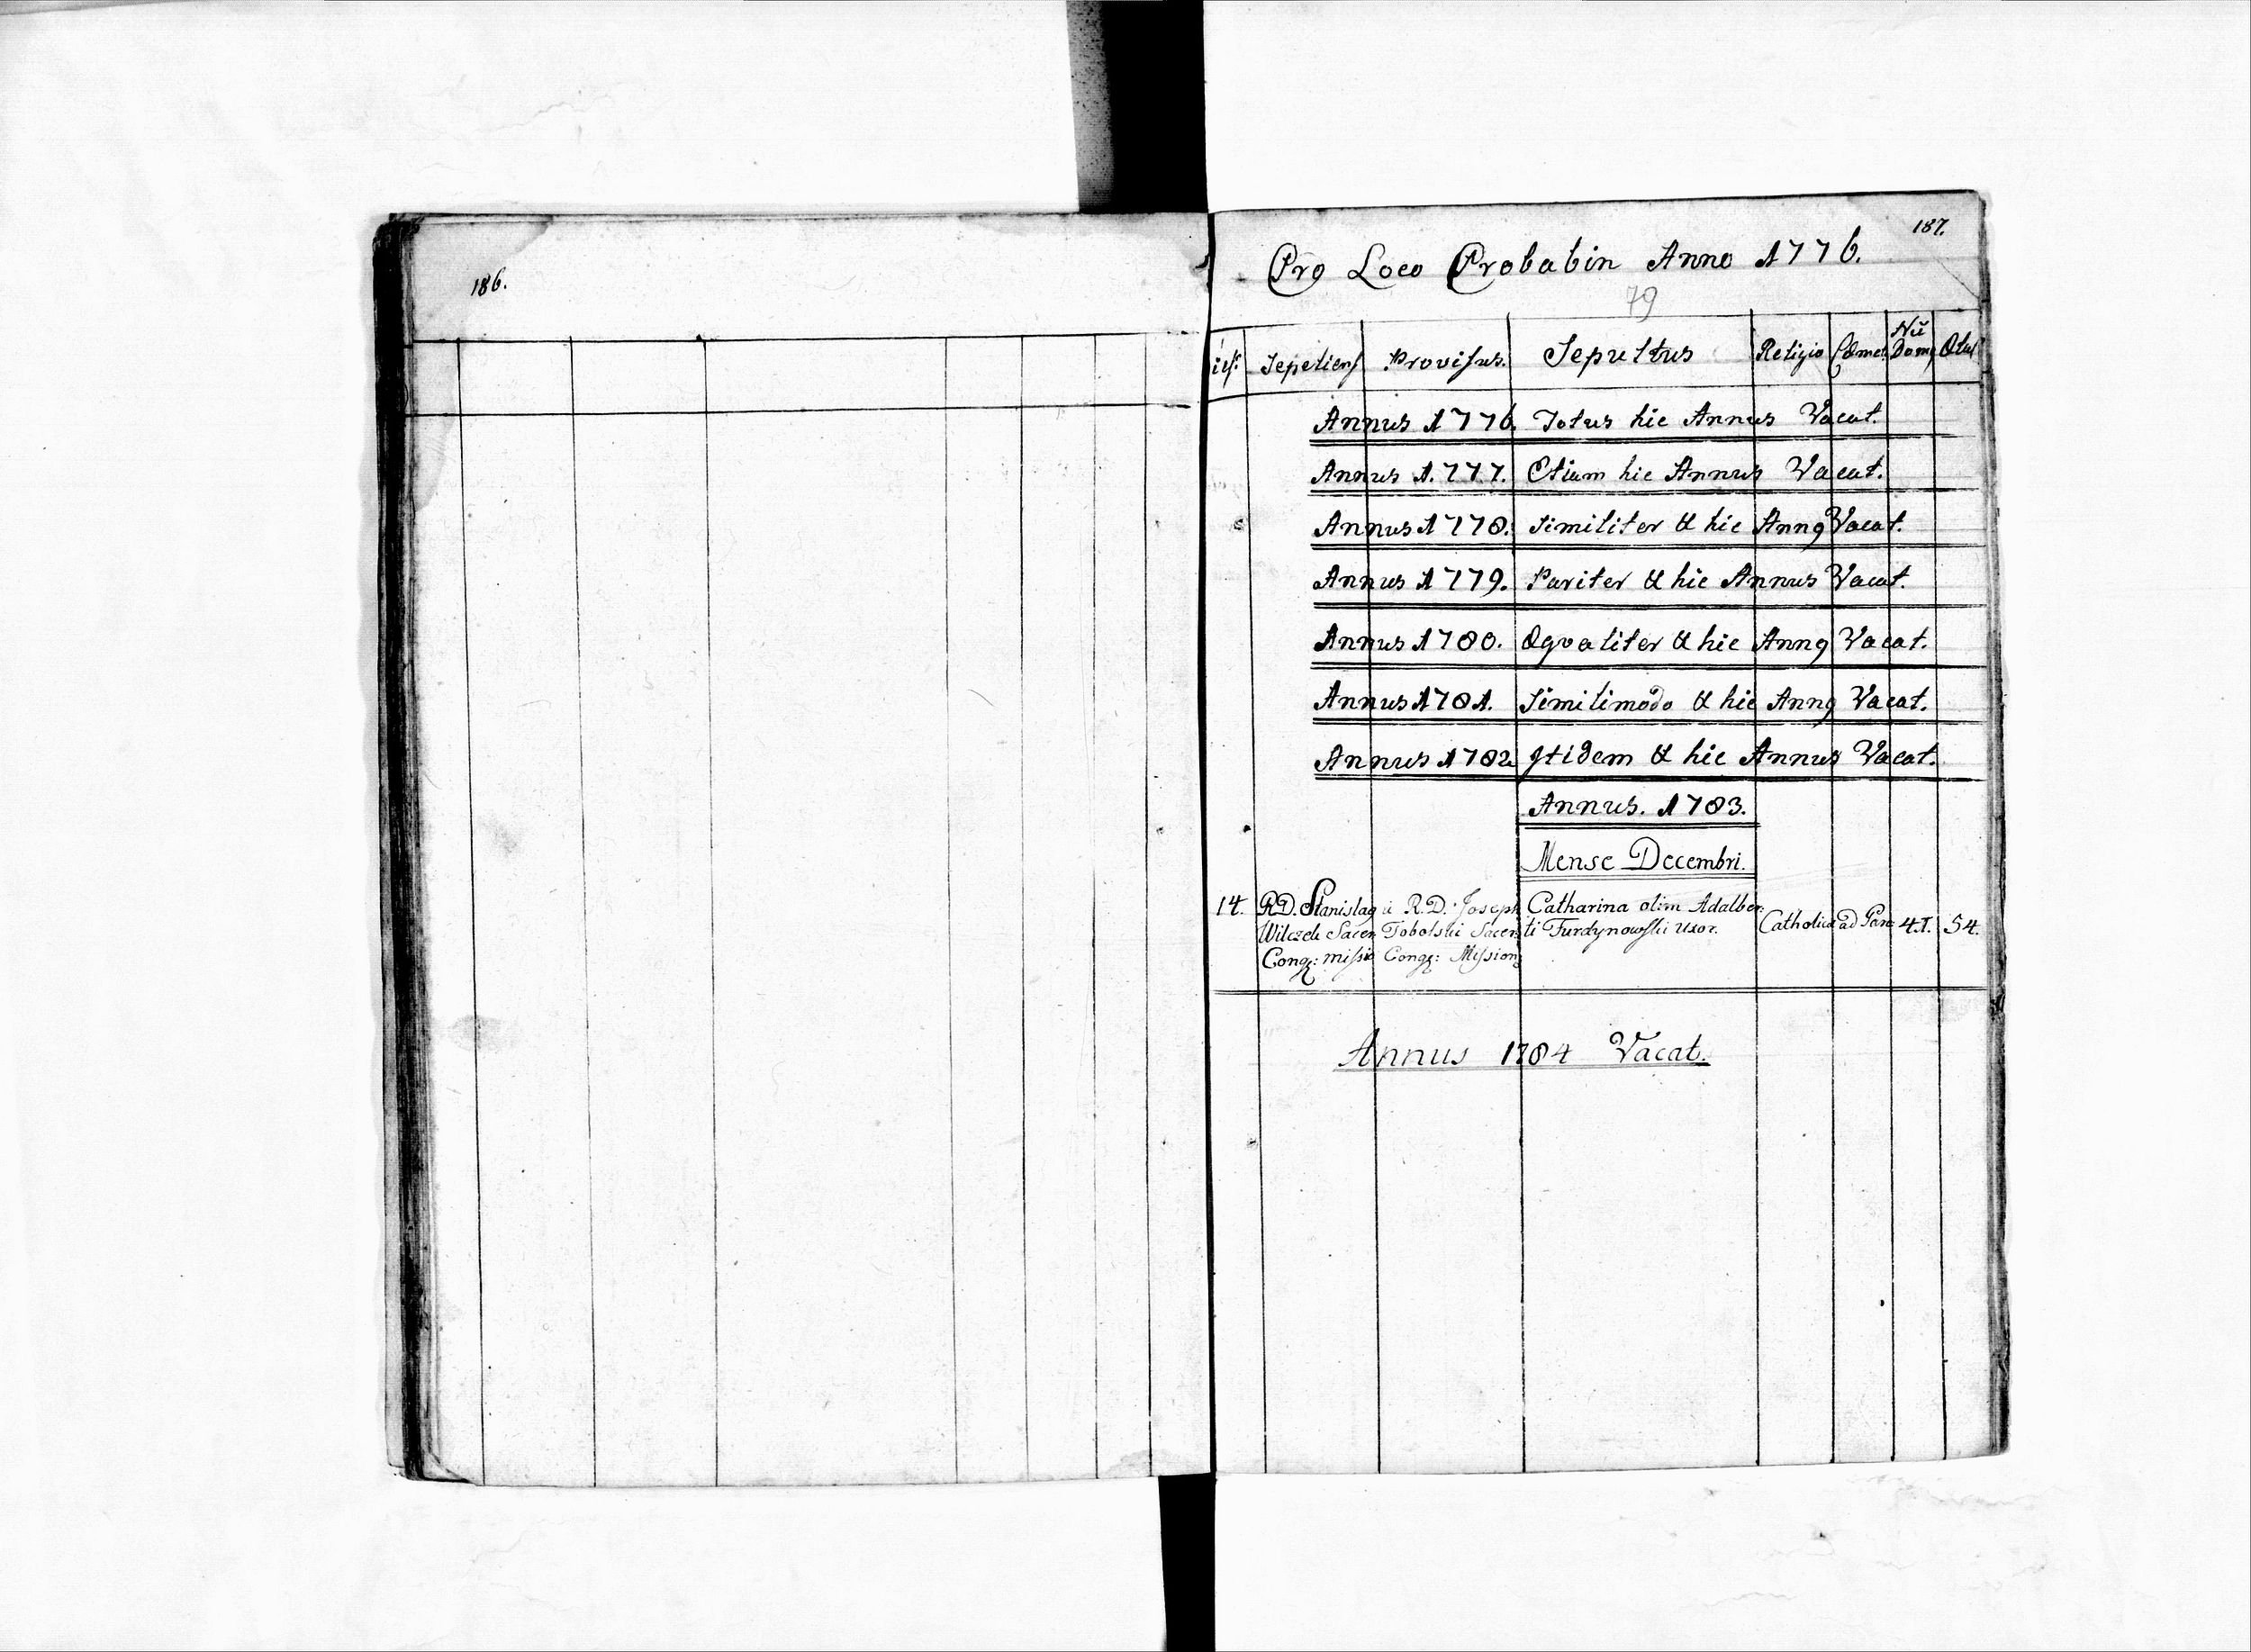 186.
187.
Pro Loco Probabin Anno 1776.
79
Sepeliens Provisus. Sepultus Religio Cœmet. Nũ Domq Ætas
Annus 1776. Totus hic Annus Vacat.
Annus 1.777. Etiam hic Annus Vacat.
Annus 1778. Similiter & hic Annq Vacat.
Annus 1779. Pariter & hic Annus Vacat.
Annus 1780. Æqvaliter & hic Annq Vacat.
Annus 1781. Similimodo & hic Annq Vacat.
Annus 1782 Itidem & hic Annus Vacat.
Annus. 1783.
Mense Decembri.
14. RD. Stanislaq à R.D. Joseph Catharina olim Adalber:
Wilczek Sacer Tobolski Sacer: ti Furdynowski uxor. Catholica ad Paro 41. 54.
Cong: missio Cong: Mission
Annus 1784 Vacat.